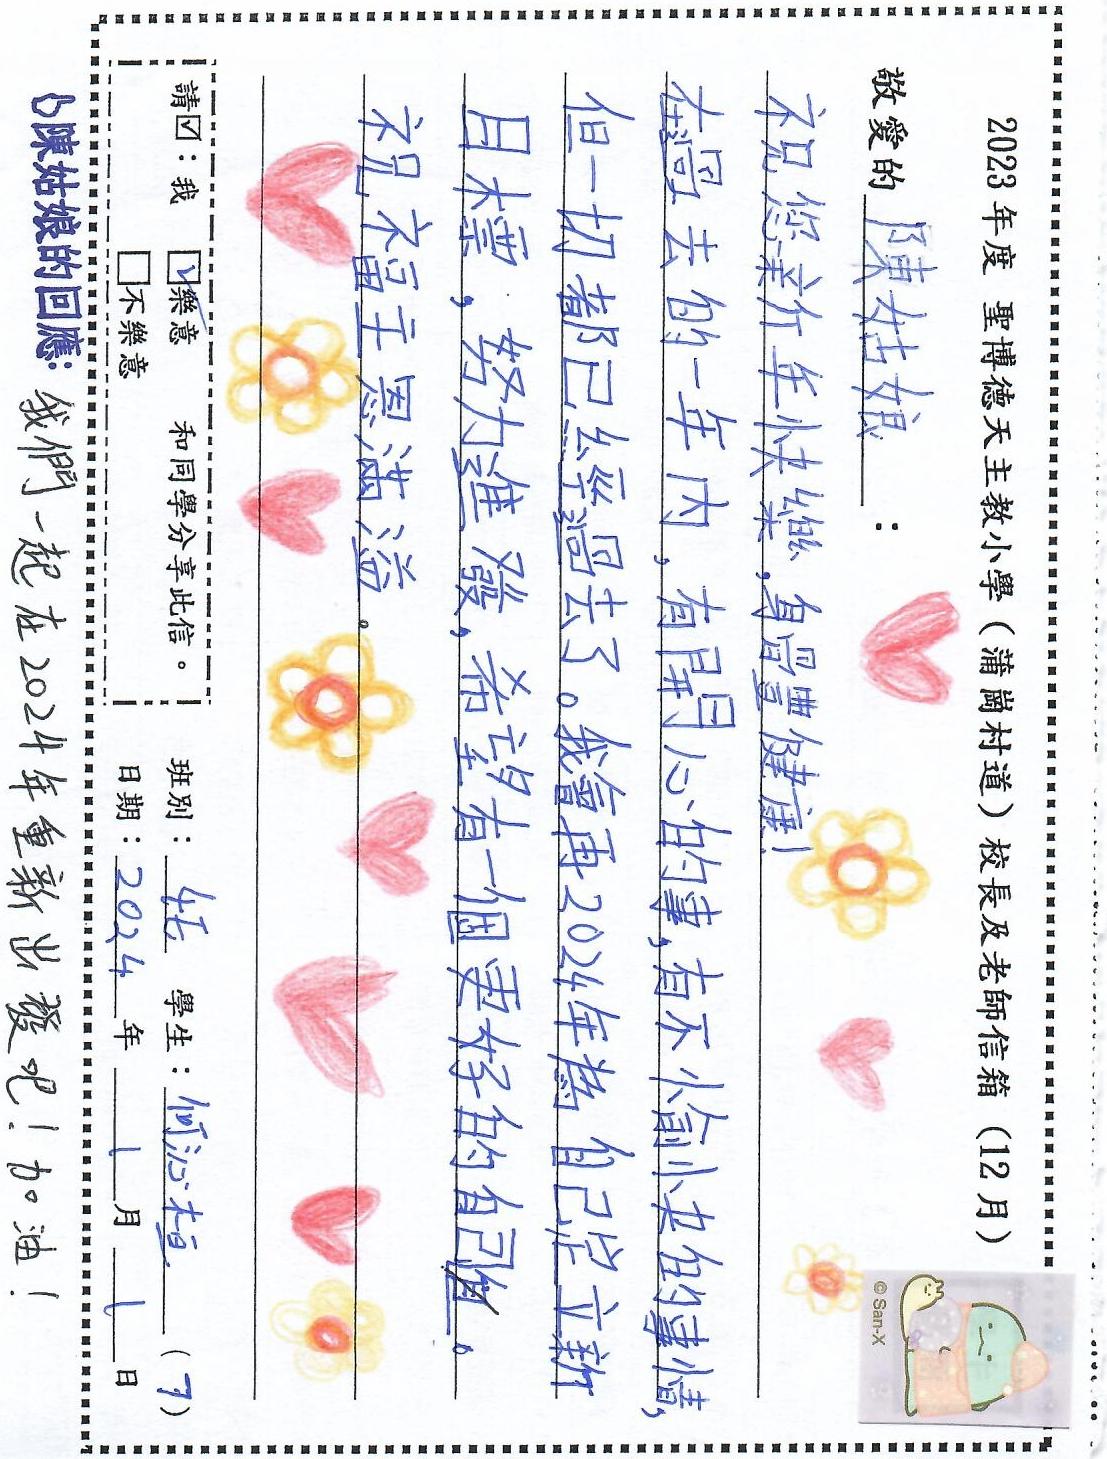 2023年度 聖博德天主教小學(蒲崗村道)校長及老師信箱(12月)
敬愛的 陳姑娘:
祝您新年快樂,身體健康!
在過去的一年內,有開心的事,有不愉快的事情,
但一切都已經過去了。我會再2024年為自己定立新
目標,努力進發,希望有一個更好的自己。
祝福主恩滿溢。
請☑:我 ☑樂意 和同學分享此信。
□不樂意
班別:4E 學生:何沁桓(7)
日期:2024年1月1日
陳姑娘的回應:我們一起在2024年重新出發吧!加油!
© San-X